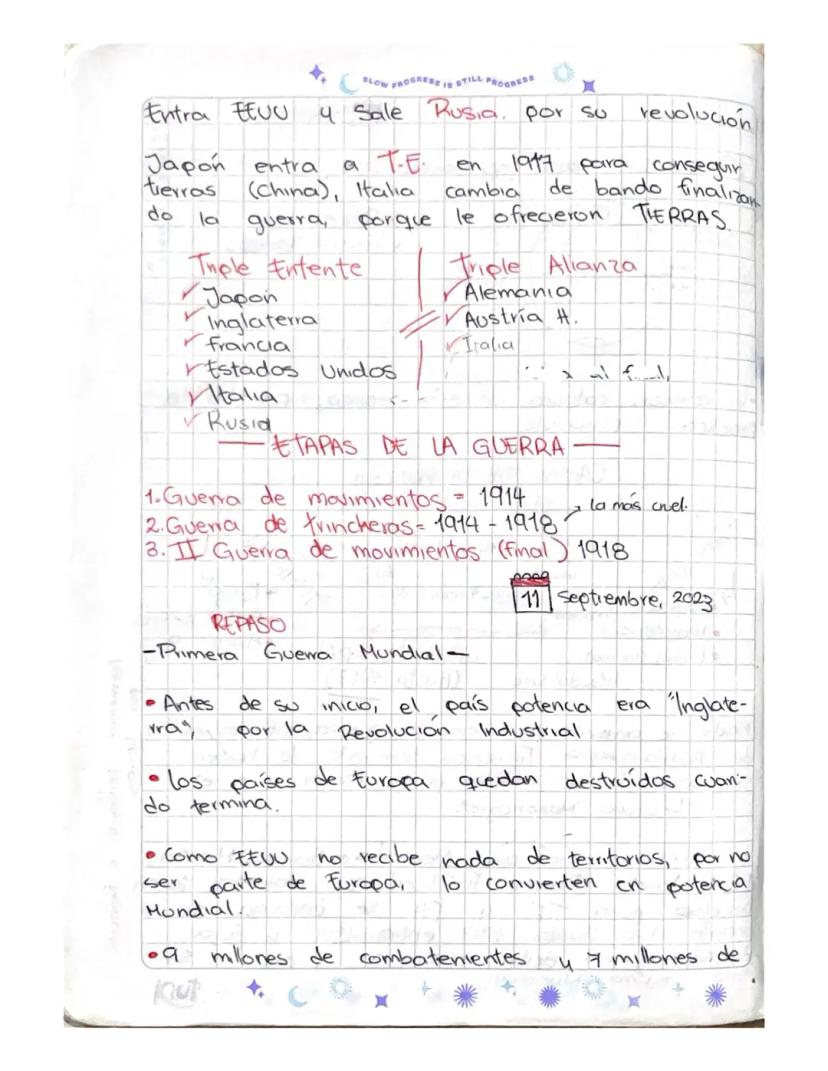 SLOW PROGRESS IS STILL PROGRESS
Entra EEUU y Sale Rusia. por su revolución
Japón entra a T.E. en 1917 para conseguir
tierras (China), Italia cambia de bando finalizan
do la guerra, porque le ofrecieron TIERRAS.
Triple Entente
Japón
Inglaterra
Francia
Estados Unidos
Italia
Rusia
Triple Alianza
Alemania
Austría H.
Italia
ETAPAS DE LA GUERRA
1. Guerra de movimientos = 1914
2. Guerra de trincheras = 1914 - 1918 → la más cruel.
3. II Guerra de movimientos (final) 1918
11 Septiembre, 2023
REPASO
- Primera Guerra Mundial -
• Antes de su inicio, el país potencia era "Inglate-
rra", por la Revolución Industrial
• los países de Europa quedan destruídos cuan-
do termina.
• Como EEUU no recibe nada de territorios, por no
ser parte de Europa, lo convierten en potencia
Mundial.
• 9 millones de combatenientes y 7 millones de